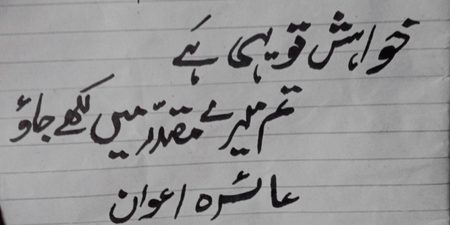 خواہش تو یہی ہَے
تم میرے مقدّر میں لکھے جاؤ
عائزہ اعوان